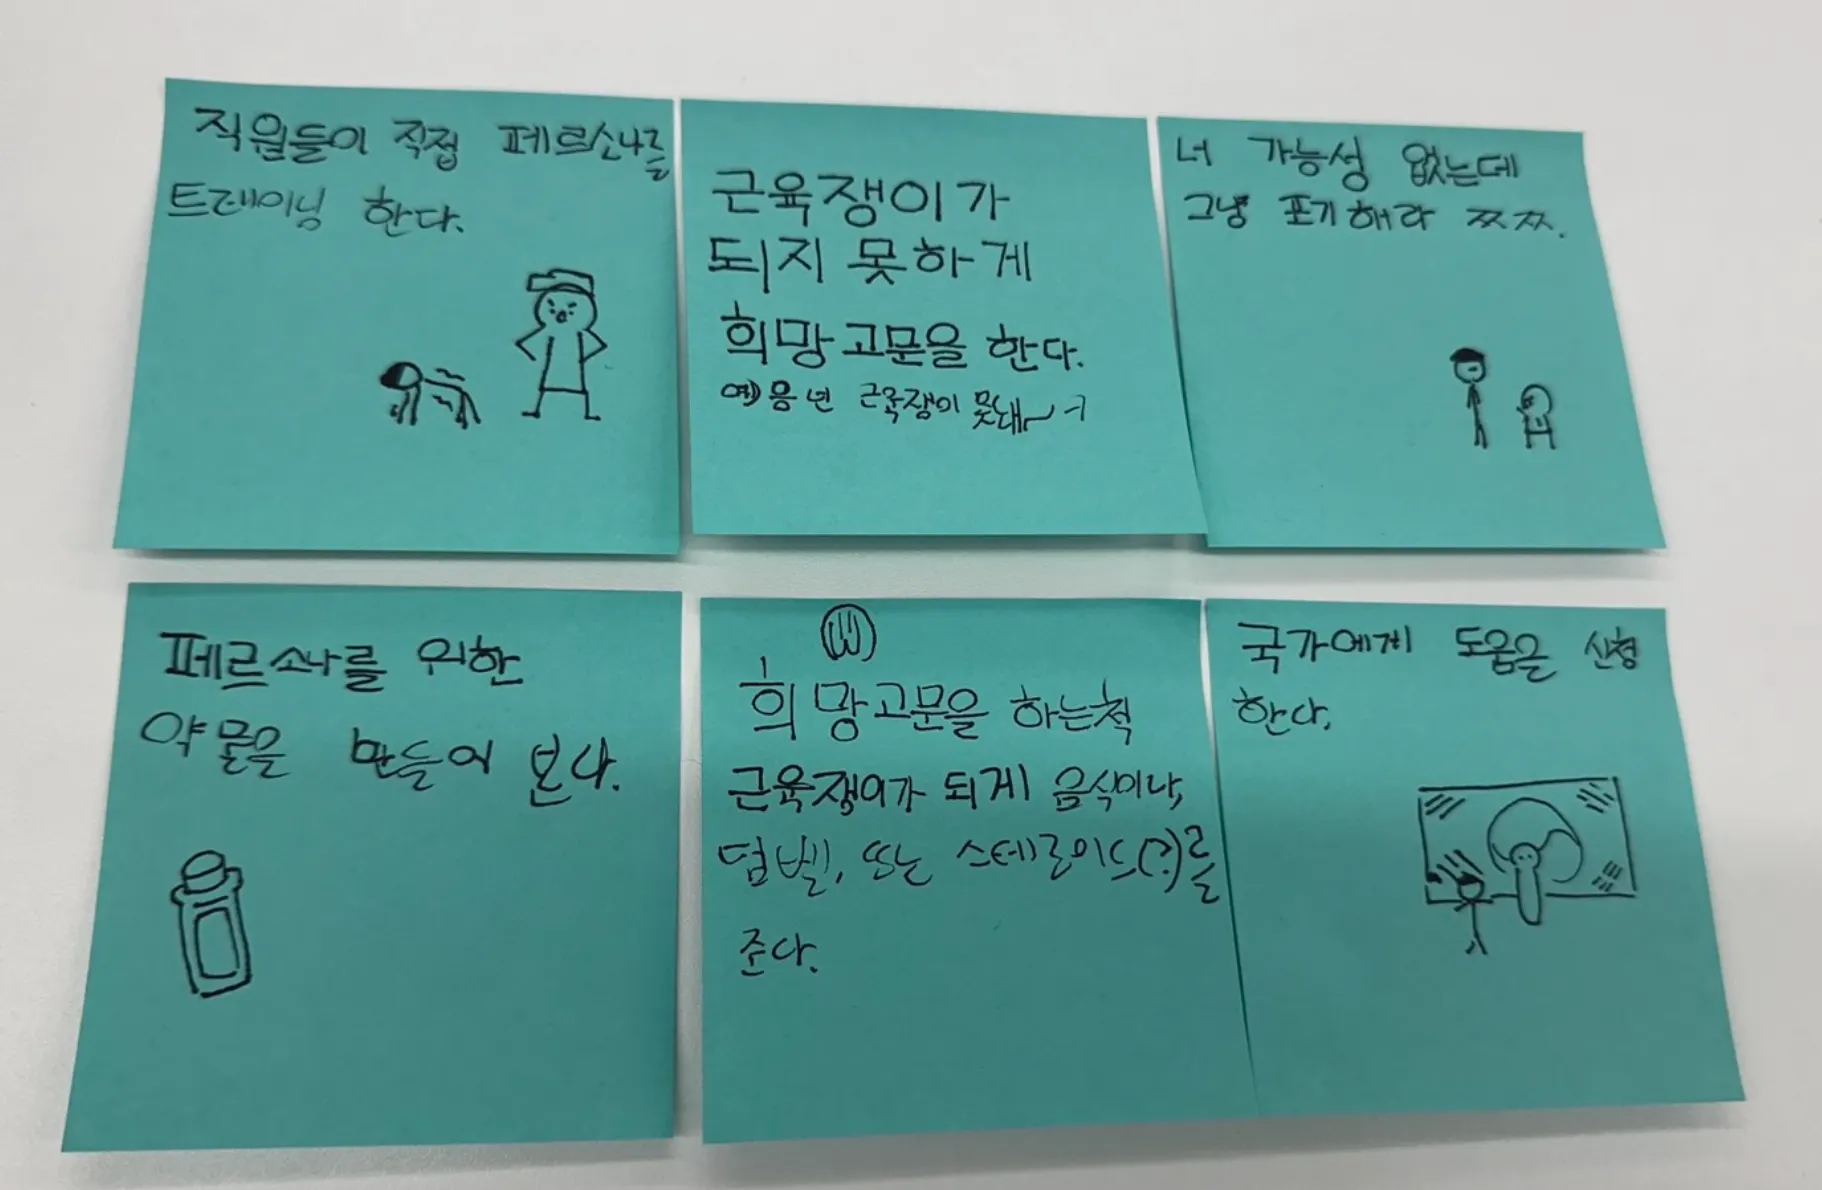 직원들이 직접 페르소나를
트레이닝 한다.
근육쟁이가
되지 못하게
희망고문을 한다.
예) 응 넌 근육쟁이 못돼~
너 가능성 없는데
그냥 포기해라 ㅉㅉ.
페르소나를 위한
약물을 만들어 본다.
희망고문을 하는척
근육쟁이가 되게 음식이나,
덤벨, 또는 스테로이드(?)를
준다.
국가에게 도움을 신청
한다.